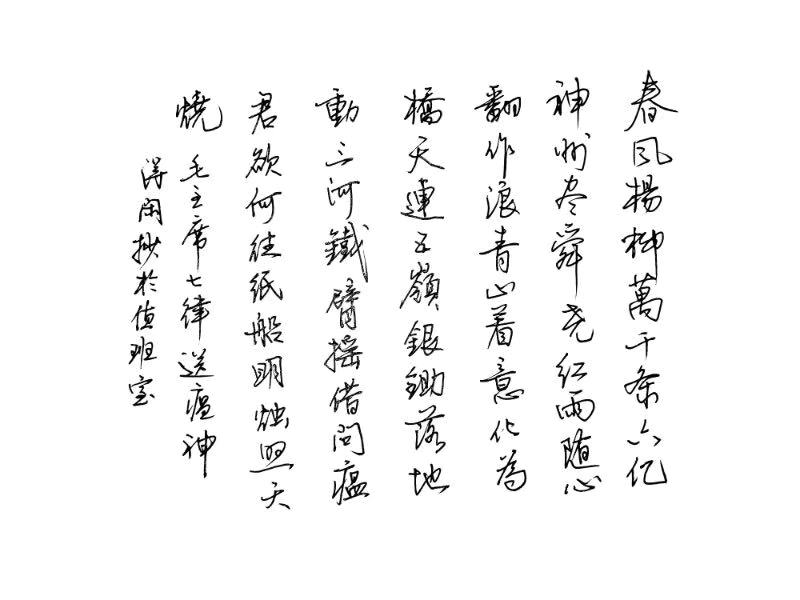 春风楊柳萬千条六亿
神州尽舜尧红雨随心
翻作浪青山着意化為
橋天連五嶺銀鋤落地
動三河鐵臂摇借問瘟
君欲何往纸船明烛照天
燒 毛主席七律送瘟神
得闲抄於值班室